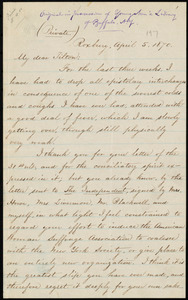 Original in possession of Youngstown's Library
of Buffalo, N.Y.
(Private.)
Roxbury, April 5, 1870.
My dear Tilton:
For the last three weeks, I
have had to drop all epistolary interchange
in consequence of one of the severest colds
and coughs I have ever had, attended with
a good deal of fever, which I am slowly
getting rid of, though still physically
very weak.
I thank you for your letter of the
30th ult., and for the conciliatory spirit ex-
pressed in it; but you already know, by the
letter sent to The Independent, signed by Mrs.
Howe, Mrs. Livermore, Mr. Blackwell, and
myself, in what light I feel constrained
to regard your effort to induce the American
Woman Suffrage Association to coalesce
with the New York Society, or you plan to
an entirely new organization. I think it is
the greatest slip you have ever made, and
therefore regret it deeply for your own sake.